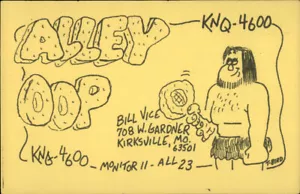 KNQ-4600
ALLEY
OOP
BILL VICE
708 W. GARDNER
KIRKSVILLE, MO.
63501
KNQ-4600
MONITOR 11 - ALL 23